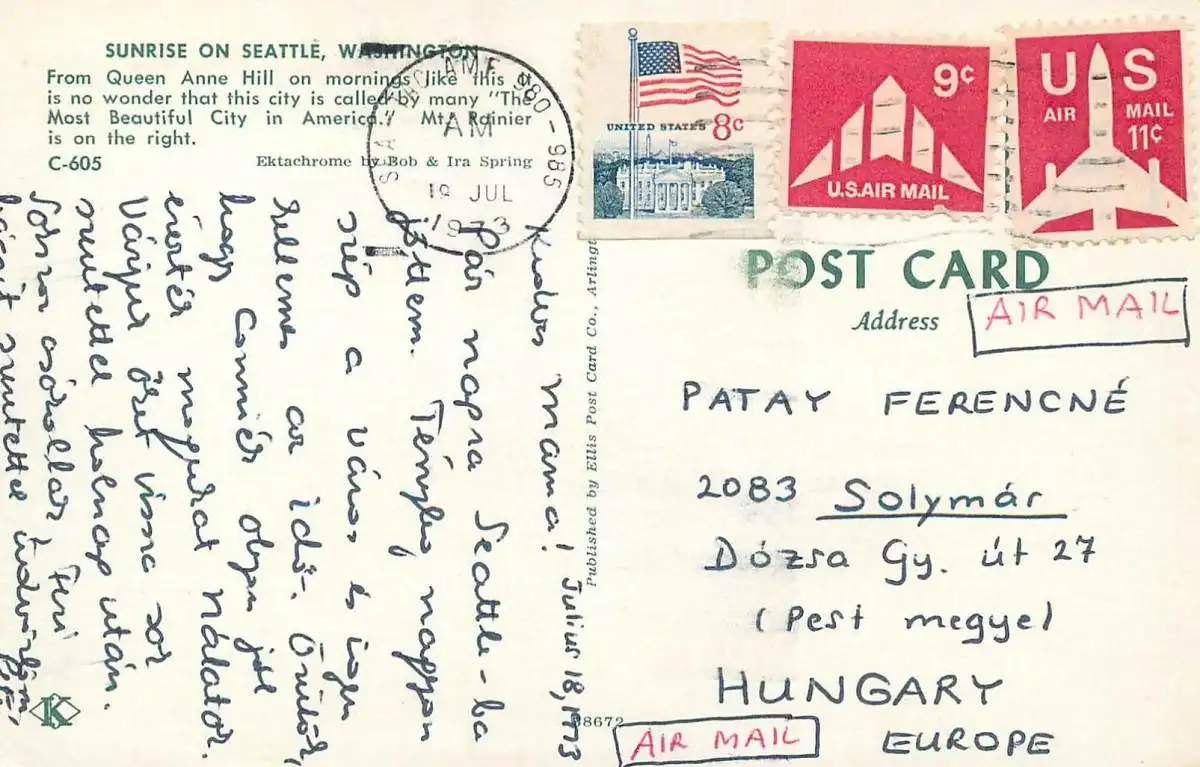 SUNRISE ON SEATTLE, WASHINGTON
From Queen Anne Hill on mornings like this it
is no wonder that this city is called by many "The
Most Beautiful City in America." Mt. Rainier
is on the right.
C-605
Ektachrome by Bob & Ira Spring
980-985
AM
19 JUL
1973
UNITED STATES 8c
9c
U.S. AIR MAIL
US
AIR MAIL
11c
POST CARD
Address
AIR MAIL
Published by Ellis Post Card Co., Arling
Július 18, 1973
Kedves Mama!
Pár napra Seattle-ba
jöttem. Tényleg nagyon
szép a város és igen
kellemes az idő. Örülök,
hogy Conniék olyan jól
érezték magukat Nálatok.
Várjuk őket vissza sok
szeretettel holnap után.
Sokszor csókollak Feri
szeretettel
PATAY FERENCNÉ
2083 Solymár
Dózsa Gy. út 27
(Pest megye)
HUNGARY
EUROPE
AIR MAIL
K
38672